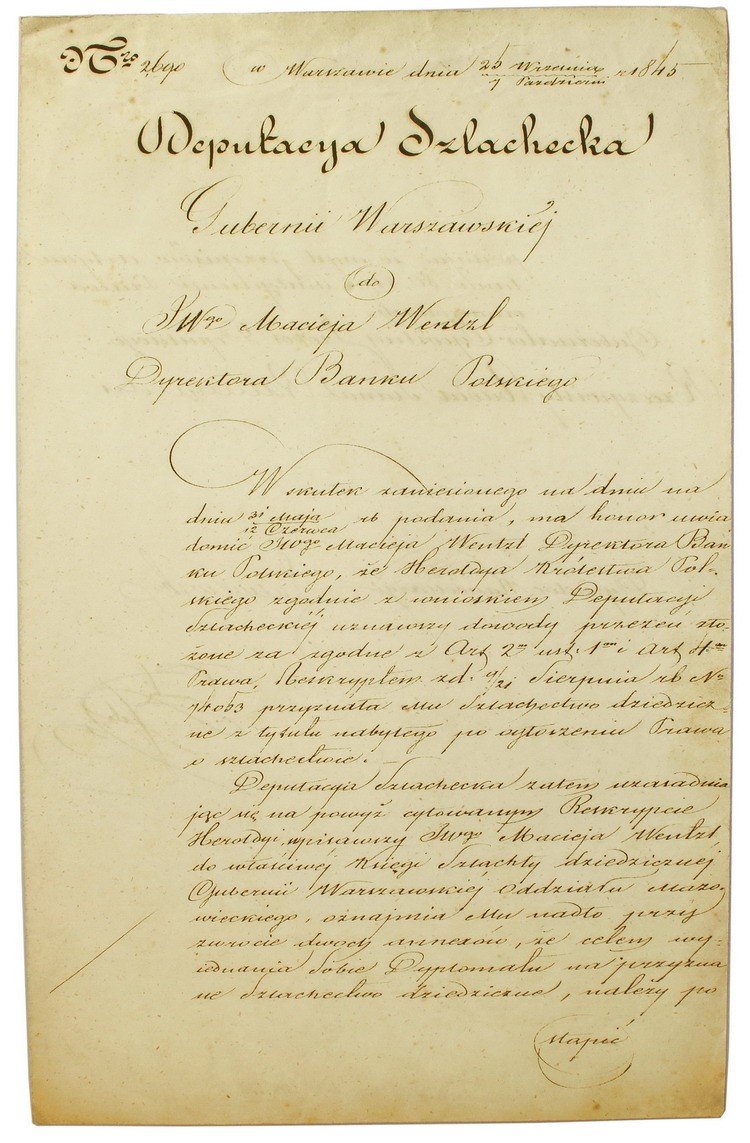 Nro 2690 w Warszawie dnia 25 Września / 7 Październ r 1845
Deputacya Szlachecka
Gubernii Warszawskiéj
do
JWgo Macieja Wentzl
Dyrektora Banku Polskiego
W skutek zaniesionego na dniu na
dniu 31 Maja / 12 Czerwca rb podania, ma honor uwia
domić JWgo Macieja Wentzl Dyrektora Ban
ku Polskiego, że Heroldya Królestwa Pol-
skiego zgodnie z wnioskiem Deputacyi
Szlacheckiéj uznawszy dowody przezeń zło
żone za zgodne z Art 2m ust. 1m i Art 4m
Prawa, Reskryptem zd. 9/21 Sierpnia rb No
74063 przyznała Mu Szlachectwo dziedzicz-
ne z tytułu nabytego po ogłoszeniu Prawa
o szlachectwie. –
Deputacyia Szlachecka zatem uzasadnia
jąc się na powyż cytowanym Reskrypcie
Heroldyi, wpisawszy JWgo Macieja Wentzl
do właściwéj Księgi Szlachty dziedzicznéj
Gubernii Warszawskiéj Oddziału Mazo-
wieckiego, oznajmia Mu nadto przy
zwrocie dwóch annexów, że celem wy-
iednania Sobie Dyplomatu na przyzna
ne Szlachectwo dziedziczne, należy po
stąpić